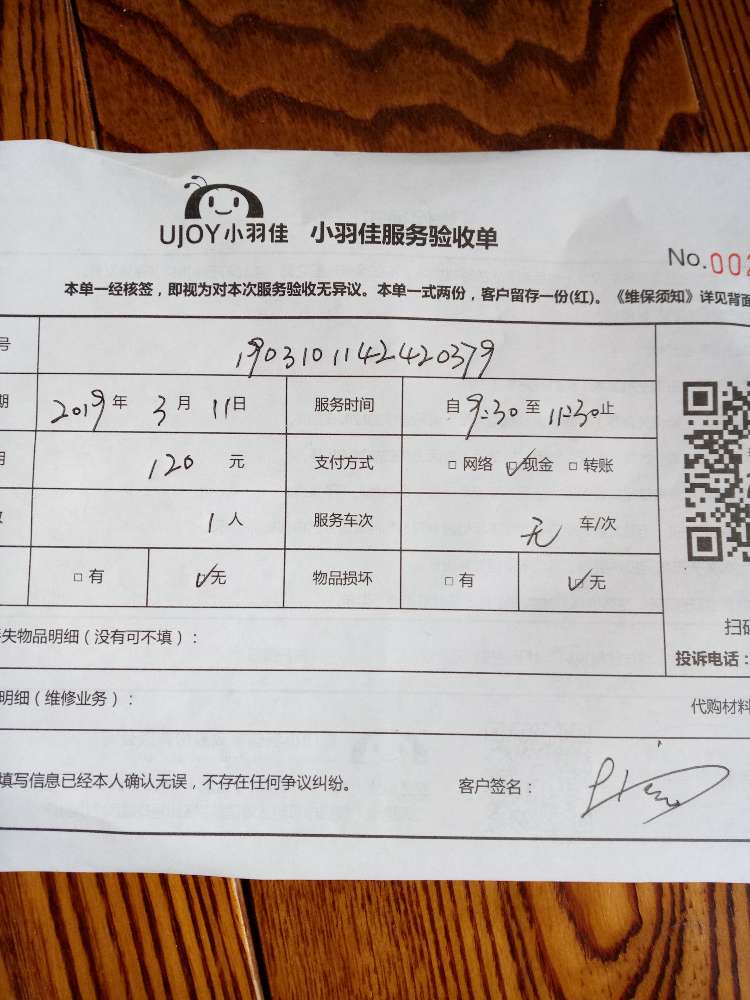 UJOY小羽佳 小羽佳服务验收单
No.002
本单一经核签，即视为对本次服务验收无异议。本单一式两份，客户留存一份(红)。《维保须知》详见背面
号 1903101142420379
期 2019年 3月 11日 服务时间 自 9:30 至 11:30 止
用 120 元 支付方式 □ 网络 ☑现金 □ 转账
数 1 人 服务车次 无 车/次
□ 有 ☑无 物品损坏 □ 有 ☑无
失物品明细（没有可不填）：
扫码
投诉电话：
明细（维修业务）：
代购材料
填写信息已经本人确认无误，不存在任何争议纠纷。 客户签名：